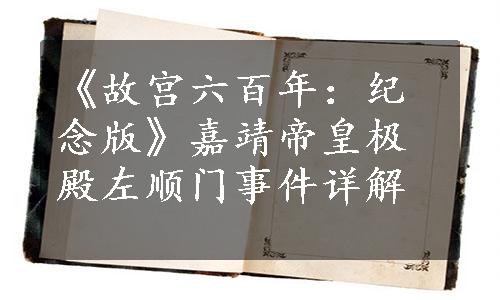 《故宫六百年：纪
念版》嘉靖帝皇极
殿左顺门事件详解